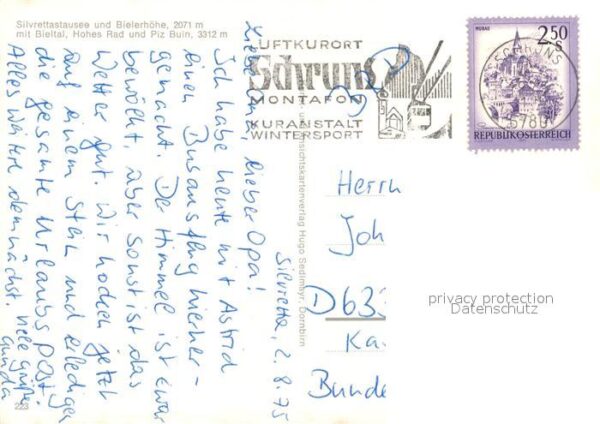 Silvrettastausee und Bielerhöhe, 2071 m
mit Bieltal, Hohes Rad und Piz Buin, 3312 m
LUFTKURORT
Schruns
MONTAFON
KURANSTALT
WINTERSPORT
MURAU
2.50 S
REPUBLIK ÖSTERREICH
SCHRUNS
6780
Silvretta, 2.8.75
Liebe Oma, lieber Opa!
Ich habe heute mit Astrid
einen Busausflug hierher-
gemacht. Der Himmel ist zwar
bewölkt, aber sonst ist das
Wetter gut. Wir hocken jetzt
auf einem Stein und erledigen
die gesamte Urlaubspost.
Alles weitere demnächst. Viele Grüße
Gunda
Ansichtskartenverlag Hugo Sedlmayr, Dornbirn
Herrn
Joh
D633
Ka
Bunde
privacy protection
Datenschutz
223